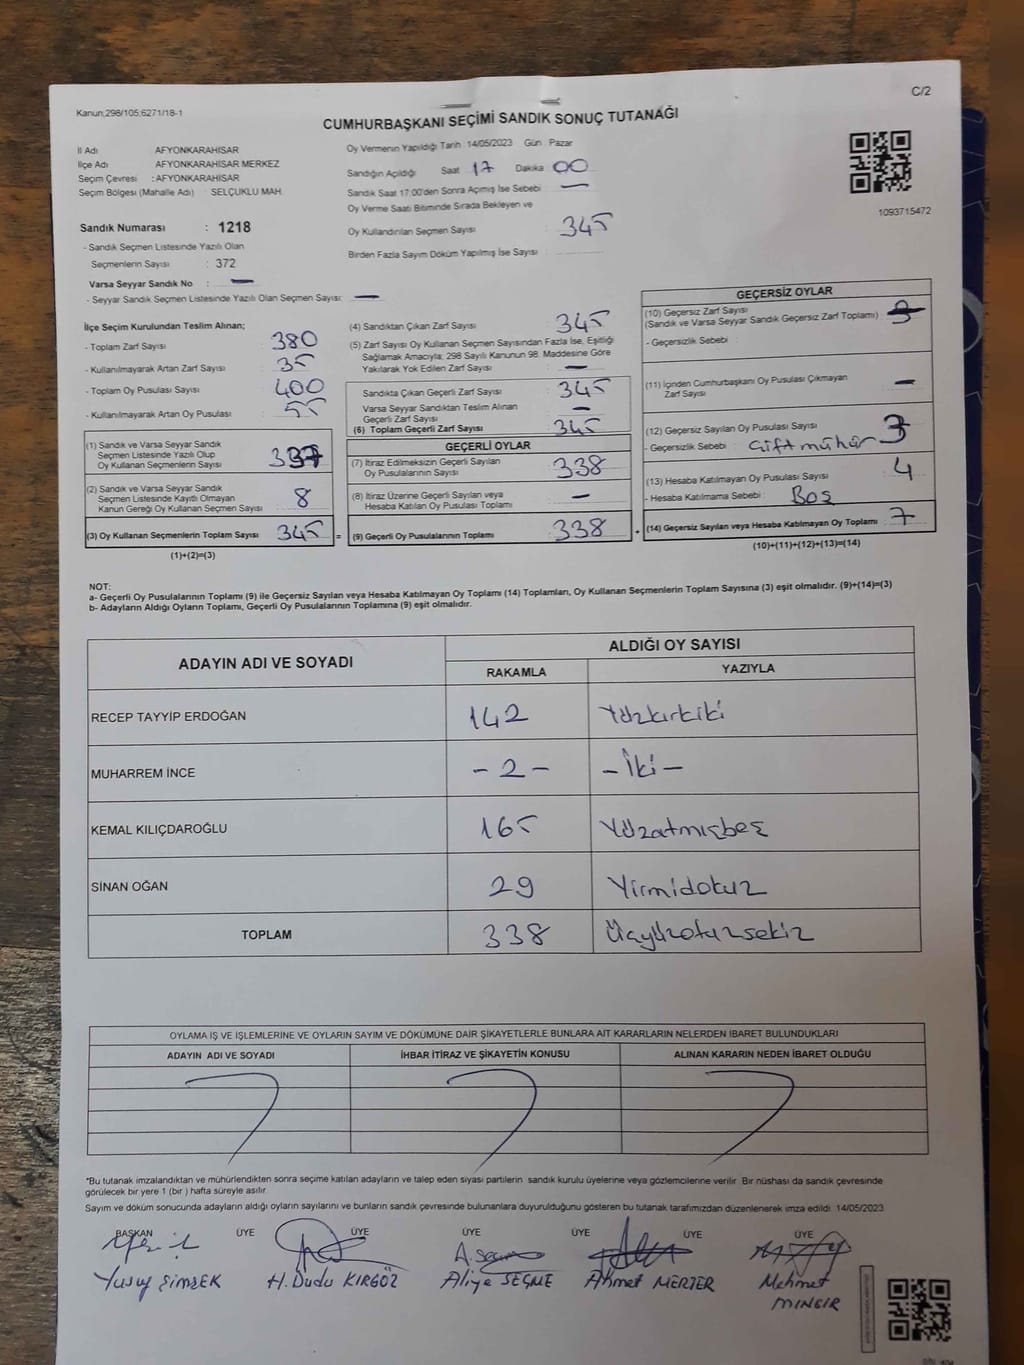 C/2
Kanun;298/105;6271/18-1
CUMHURBAŞKANI SEÇİMİ SANDIK SONUÇ TUTANAĞI
İl Adı AFYONKARAHİSAR
İlçe Adı AFYONKARAHİSAR MERKEZ
Seçim Çevresi : AFYONKARAHİSAR
Seçim Bölgesi (Mahalle Adı) : SELÇUKLU MAH.
Sandık Numarası : 1218
- Sandık Seçmen Listesinde Yazılı Olan
Seçmenlerin Sayısı : 372
Varsa Seyyar Sandık No : —
- Seyyar Sandık Seçmen Listesinde Yazılı Olan Seçmen Sayısı: —
Oy Vermenin Yapıldığı Tarih 14/05/2023 Gün Pazar
Sandığın Açıldığı Saat 17 Dakika 00
Sandık Saat 17:00'den Sonra Açımış İse Sebebi : —
Oy Verme Saati Bitiminde Sırada Bekleyen ve
Oy Kullandırılan Seçmen Sayısı : 345
Birden Fazla Sayım Döküm Yapılmış İse Sayısı :
1093715472
İlçe Seçim Kurulundan Teslim Alınan;
- Toplam Zarf Sayısı : 380
- Kullanılmayarak Artan Zarf Sayısı : 35
- Toplam Oy Pusulası Sayısı : 400
- Kullanılmayarak Artan Oy Pusulası : 55
(1) Sandık ve Varsa Seyyar Sandık
Seçmen Listesinde Yazılı Olup
Oy Kullanan Seçmenlerin Sayısı : 337
(2) Sandık ve Varsa Seyyar Sandık
Seçmen Listesinde Kayıtlı Olmayan
Kanun Gereği Oy Kullanan Seçmen Sayısı : 8
(3) Oy Kullanan Seçmenlerin Toplam Sayısı : 345 =
(1)+(2)=(3)
(4) Sandıktan Çıkan Zarf Sayısı : 345
(5) Zarf Sayısı Oy Kullanan Seçmen Sayısından Fazla İse, Eşitliği
Sağlamak Amacıyla; 298 Sayılı Kanunun 98. Maddesine Göre
Yakılarak Yok Edilen Zarf Sayısı : —
Sandıkta Çıkan Geçerli Zarf Sayısı : 345
Varsa Seyyar Sandıktan Teslim Alınan
Geçerli Zarf Sayısı : —
(6) Toplam Geçerli Zarf Sayısı : 345
GEÇERLİ OYLAR
(7) İtiraz Edilmeksizin Geçerli Sayılan
Oy Pusulalarının Sayısı : 338
(8) İtiraz Üzerine Geçerli Sayılan veya
Hesaba Katılan Oy Pusulası Toplamı : —
(9) Geçerli Oy Pusulalarının Toplamı : 338 +
GEÇERSİZ OYLAR
(10) Geçersiz Zarf Sayısı
(Sandık ve Varsa Seyyar Sandık Geçersiz Zarf Toplamı) :
- Geçersizlik Sebebi :
(11) İçinden Cumhurbaşkanı Oy Pusulası Çıkmayan
Zarf Sayısı : —
(12) Geçersiz Sayılan Oy Pusulası Sayısı : 3
- Geçersizlik Sebebi : Çift mühür
(13) Hesaba Katılmayan Oy Pusulası Sayısı : 4
- Hesaba Katılmama Sebebi : Boş
(14) Geçersiz Sayılan veya Hesaba Katılmayan Oy Toplamı : 7
(10)+(11)+(12)+(13)=(14)
NOT:
a- Geçerli Oy Pusulalarının Toplamı (9) ile Geçersiz Sayılan veya Hesaba Katılmayan Oy Toplamı (14) Toplamları, Oy Kullanan Seçmenlerin Toplam Sayısına (3) eşit olmalıdır. (9)+(14)=(3)
b- Adayların Aldığı Oyların Toplamı, Geçerli Oy Pusulalarının Toplamına (9) eşit olmalıdır.
ADAYIN ADI VE SOYADI ALDIĞI OY SAYISI
RAKAMLA YAZIYLA
RECEP TAYYİP ERDOĞAN 142 Yüzkırkiki
MUHARREM İNCE - 2 - - İki -
KEMAL KILIÇDAROĞLU 165 Yüzatmışbeş
SİNAN OĞAN 29 Yirmidokuz
TOPLAM 338 Üçyüzotuzsekiz
OYLAMA İŞ VE İŞLEMLERİNE VE OYLARIN SAYIM VE DÖKÜMÜNE DAİR ŞİKAYETLERLE BUNLARA AİT KARARLARIN NELERDEN İBARET BULUNDUKLARI
ADAYIN ADI VE SOYADI İHBAR İTİRAZ VE ŞİKAYETİN KONUSU ALINAN KARARIN NEDEN İBARET OLDUĞU
*Bu tutanak imzalandıktan ve mühürlendikten sonra seçime katılan adayların ve talep eden siyasi partilerin sandık kurulu üyelerine veya gözlemcilerine verilir. Bir nüshası da sandık çevresinde
görülecek bir yere 1 (bir) hafta süreyle asılır.
Sayım ve döküm sonucunda adayların aldığı oyların sayılarını ve bunların sandık çevresinde bulunanlara duyurulduğunu gösteren bu tutanak tarafımızdan düzenlenerek imza edildi. 14/05/2023
BAŞKAN ÜYE ÜYE ÜYE ÜYE ÜYE ÜYE
Yusuf ŞİMŞEK H. Dudu KIRGÖZ Aliye SEÇME Ahmet MERTER Mehmet
MINGIR